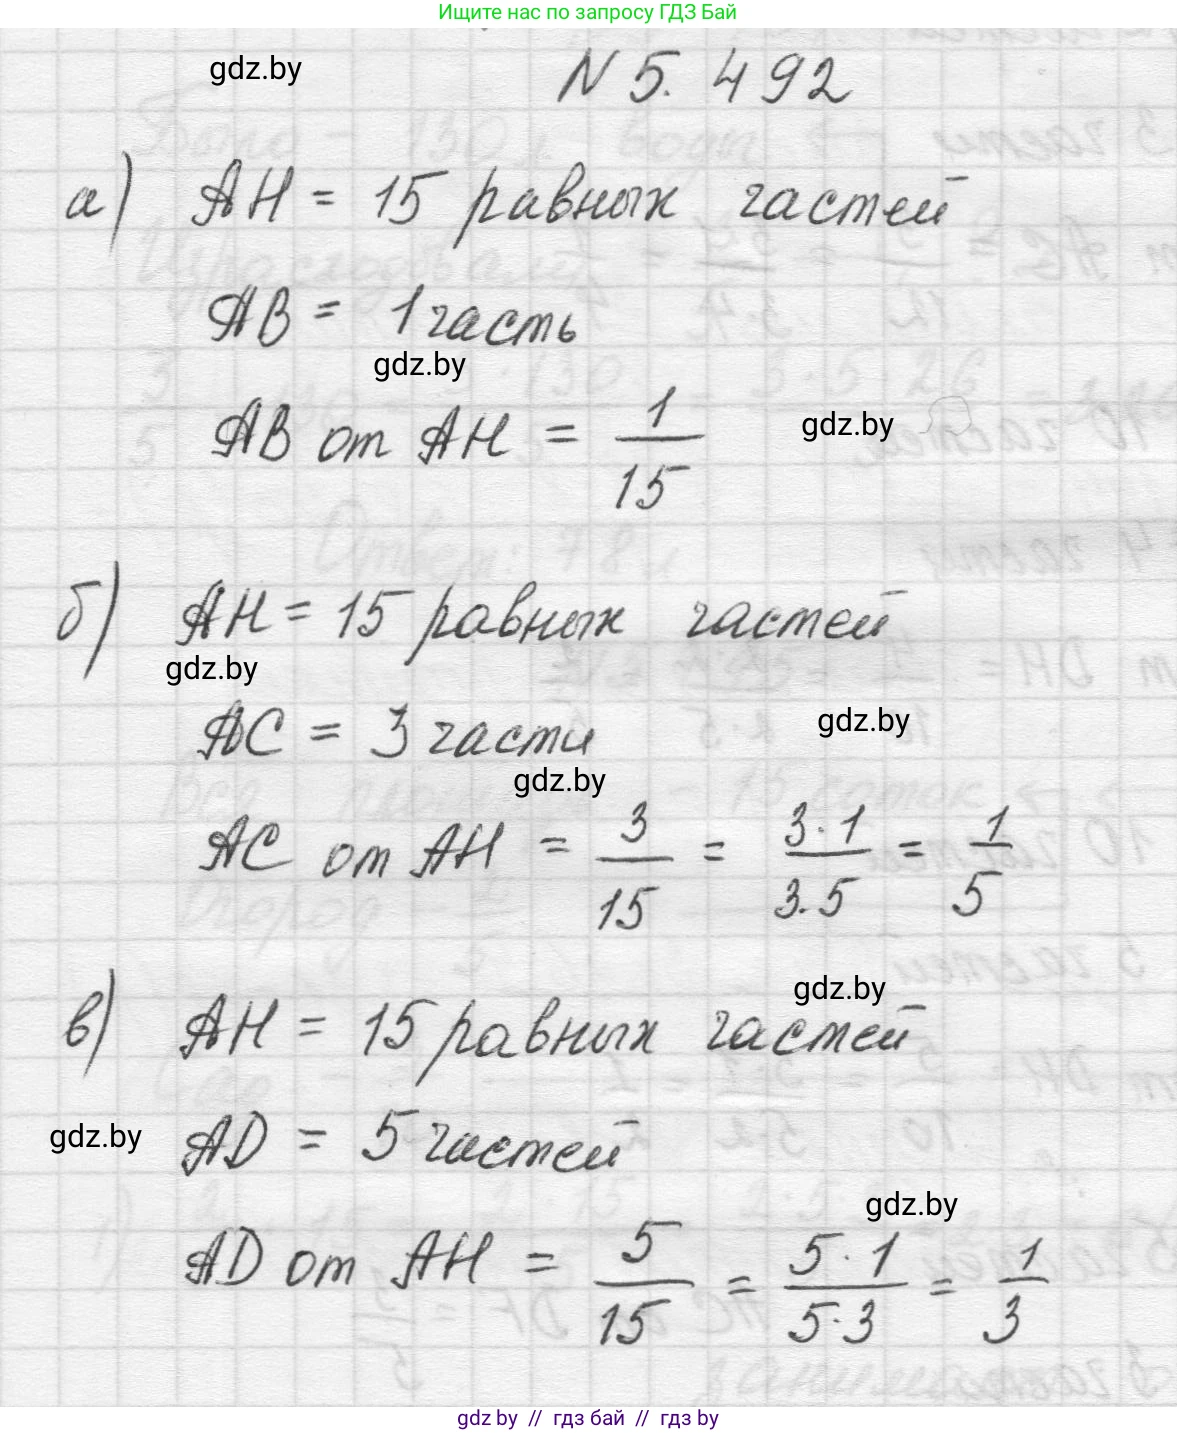 Ищите нас по запросу ГДЗ Бай
gdz.by
N 5. 492
а) AH = 15 равных частей
AB = 1 часть
gdz.by
AB от AH = 1/15
gdz.by
б) AH = 15 равных частей
gdz.by
AC = 3 части
gdz.by
gdz.by
AC от AH = 3/15 = 3·1/3·5 = 1/5
gdz.by
в) AH = 15 равных частей
gdz.by
AD = 5 частей
gdz.by
AD от AH = 5/15 = 5·1/5·3 = 1/3
gdz by // гдз бай // гдз by